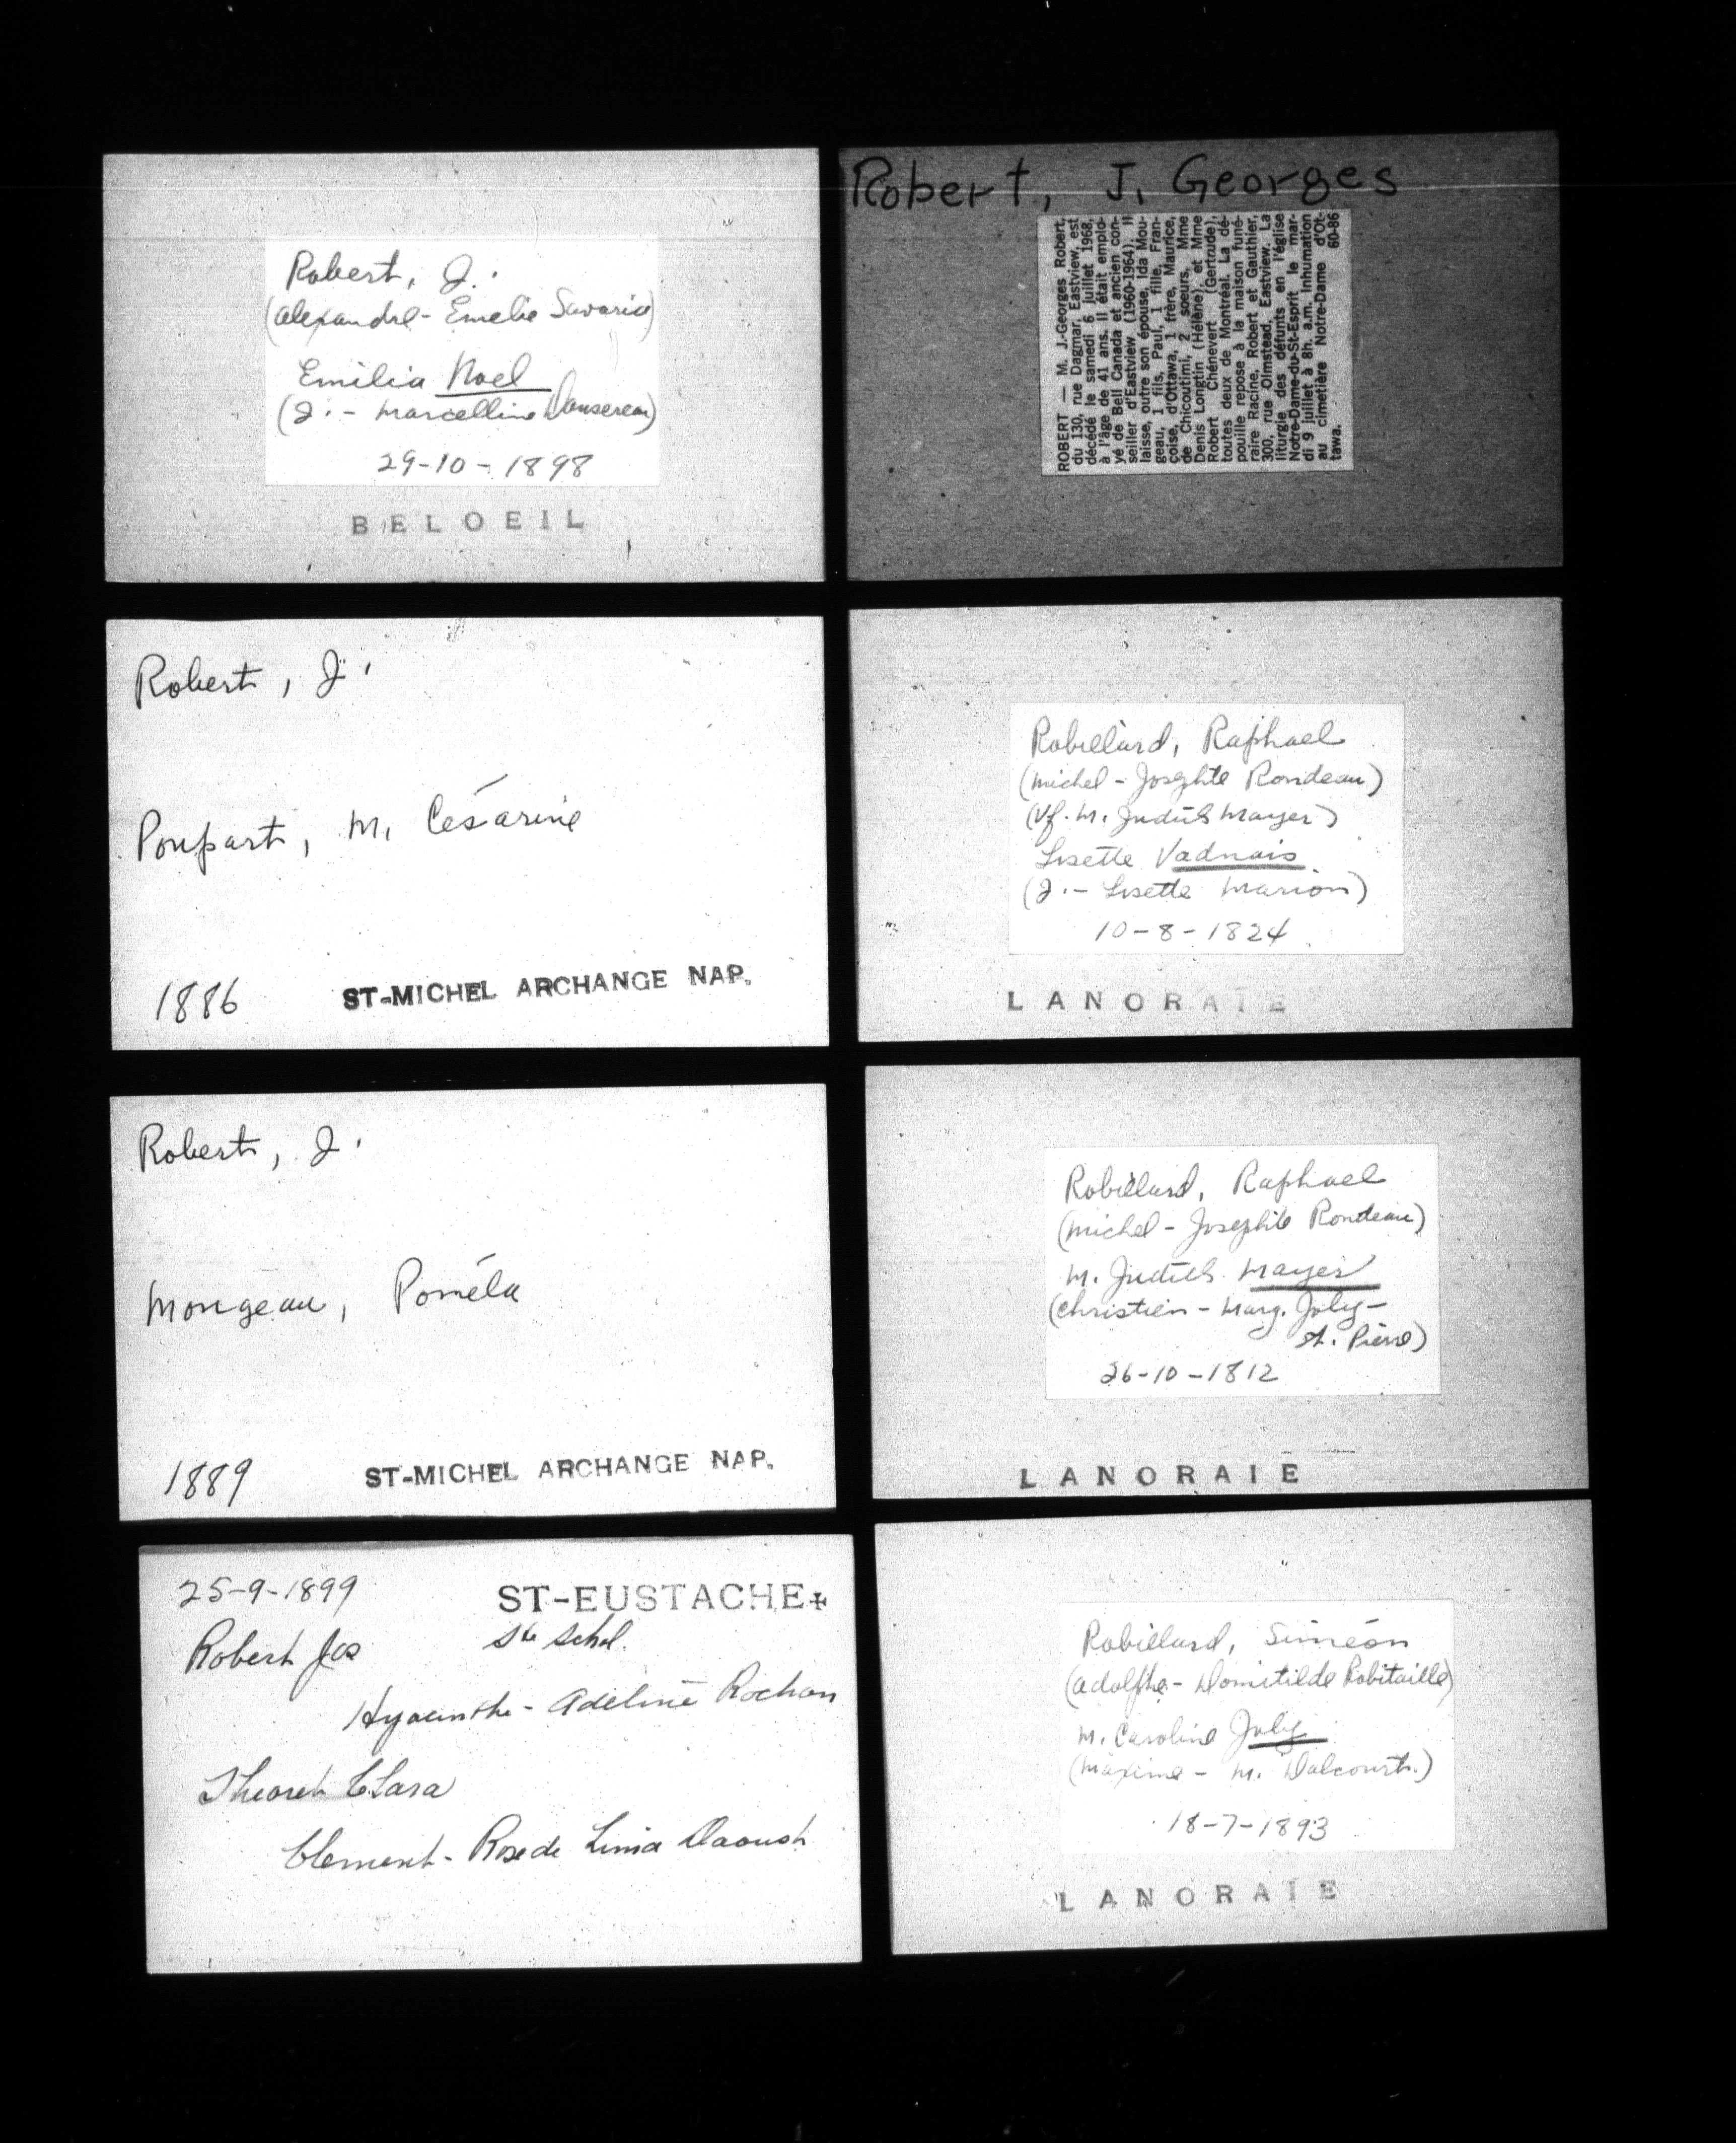 Robert, J.
(Alexandre - Emelie Savarie)
Emilia Noel
(J. - Marcelline Dansereau)
29-10-1898
BELOEIL
Robert, J. Georges
ROBERT — M. J.-Georges Robert,
du 130, rue Dagmar, Eastview, est
décédé le samedi 6 juillet 1968,
à l'âge de 41 ans. Il était emplo-
yé de Bell Canada et ancien con-
seiller d'Eastview (1960-1964). Il
laisse, outre son épouse, Ida Mou-
geau, 1 fils, Paul, 1 fille, Fran-
çoise, d'Ottawa, 1 frère, Maurice,
de Chicoutimi, 2 soeurs, Mme
Denis Longtin (Hélène), et Mme
Robert Chênevert (Gertrude),
toutes deux de Montréal. La dé-
pouille repose à la maison funé-
raire Racine, Robert et Gauthier,
300, rue Olmstead, Eastview. La
liturgie des défunts en l'église
Notre-Dame-du-St-Esprit le mar-
di 9 juillet à 8h. a.m. Inhumation
au cimetière Notre-Dame d'Ot-
tawa. 60-86
Robert, J.
Poupart, M. Césarine
1886 ST-MICHEL ARCHANGE NAP.
Robillard, Raphael
(Michel - Josephte Rondeau)
(Vf. M. Judith Mayer)
Lisette Vadnais
(J. - Lisette Marion)
10-8-1824
LANORAIE
Robert, J.
Mongeau, Poméla
1889 ST-MICHEL ARCHANGE NAP.
Robillard, Raphael
(Michel - Josephte Rondeau)
M. Judith Mayer
(Christien - Marg. Joly -
St. Pierre)
26-10-1812
LANORAIE
25-9-1899 ST-EUSTACHE+
Ste Schol.
Robert Jos
Hyacinthe - Adeline Rochon
Theoret Clara
Clement - Rose de Lima Daoust
Robillard, Siméon
(Adolphe - Domitilde Robitaille)
M. Caroline Joly
(Maxime - M. Dalcourt.)
18-7-1893
LANORAIE